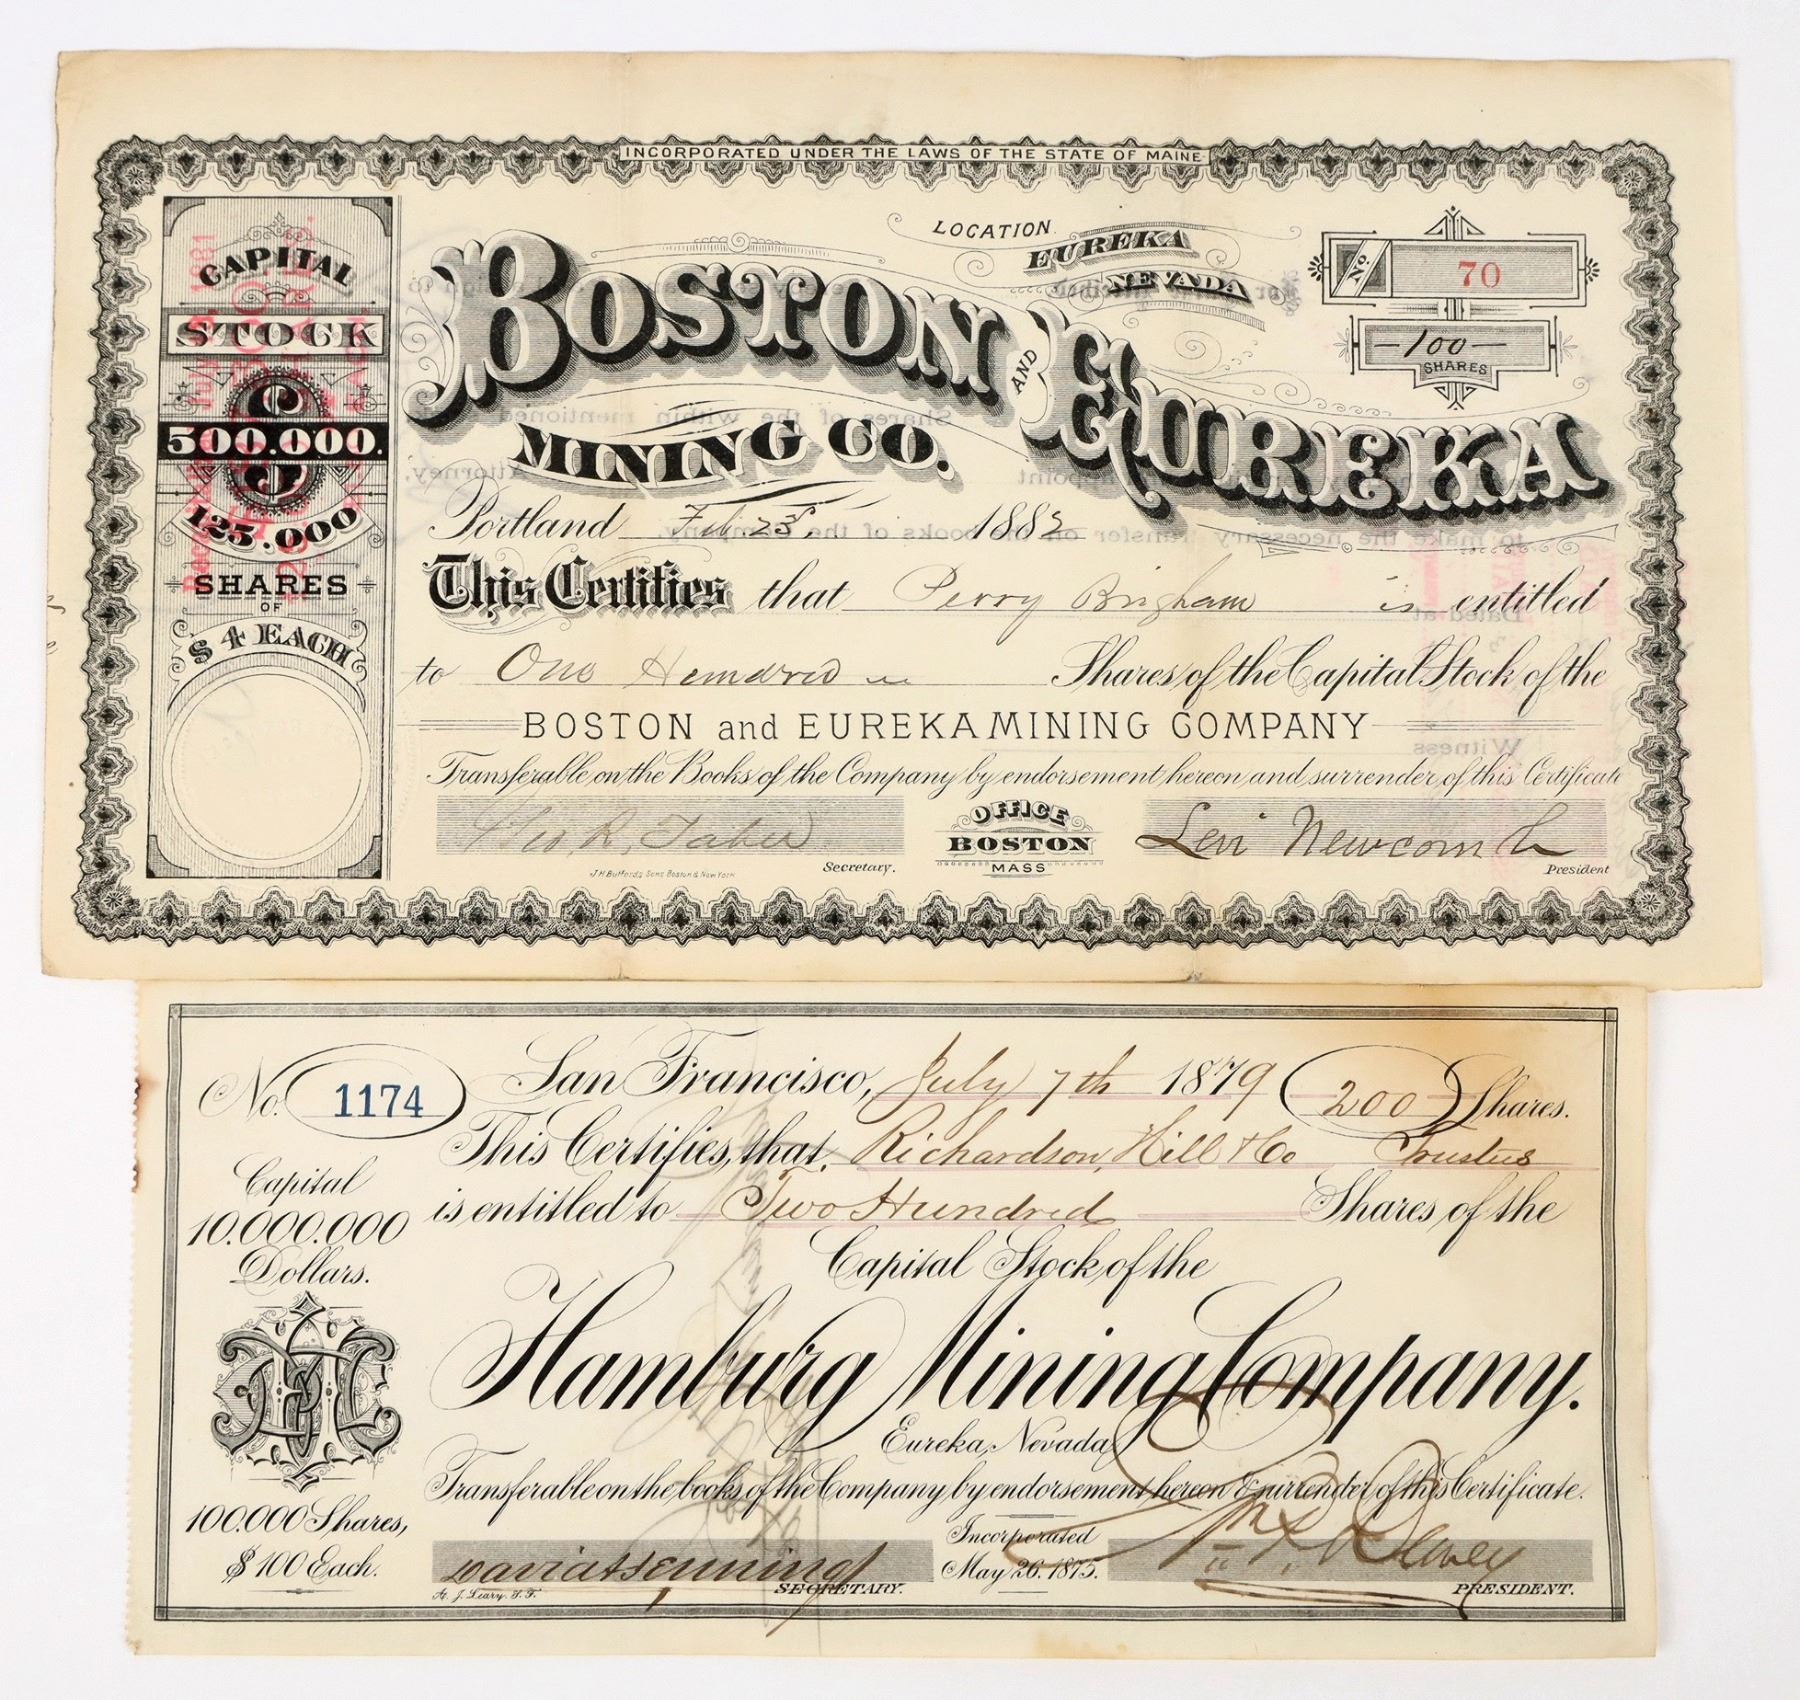 INCORPORATED UNDER THE LAWS OF THE STATE OF MAINE
CAPITAL
STOCK
$
500.000.
125.000
SHARES
OF
$4 EACH
LOCATION
EUREKA
NEVADA
No 70
—100—
SHARES
BOSTON AND EUREKA
MINING CO.
Portland Feb 23d, 1882
This Certifies that Perry Brigham is entitled
to One Hundred Shares of the Capital Stock of the
BOSTON and EUREKA MINING COMPANY
Transferable on the Books of the Company by endorsement hereon and surrender of this Certificate
Geo. R. Taber
Secretary.
OFFICE
BOSTON
MASS
Levi Newcomb
President
J.H. Bufford's Sons Boston & New York
No. 1174
San Francisco, July 7th 1879
200 Shares.
This Certifies, that Richardson, Hill & Co Trustees
is entitled to Two Hundred Shares of the
Capital Stock of the
Hamburg Mining Company.
Eureka, Nevada,
Transferable on the books of the Company by endorsement hereon & surrender of this Certificate.
Capital
10.000.000
Dollars.
HMC
100.000 Shares,
$100 Each.
SECRETARY.
Incorporated
May 26. 1875.
PRESIDENT.